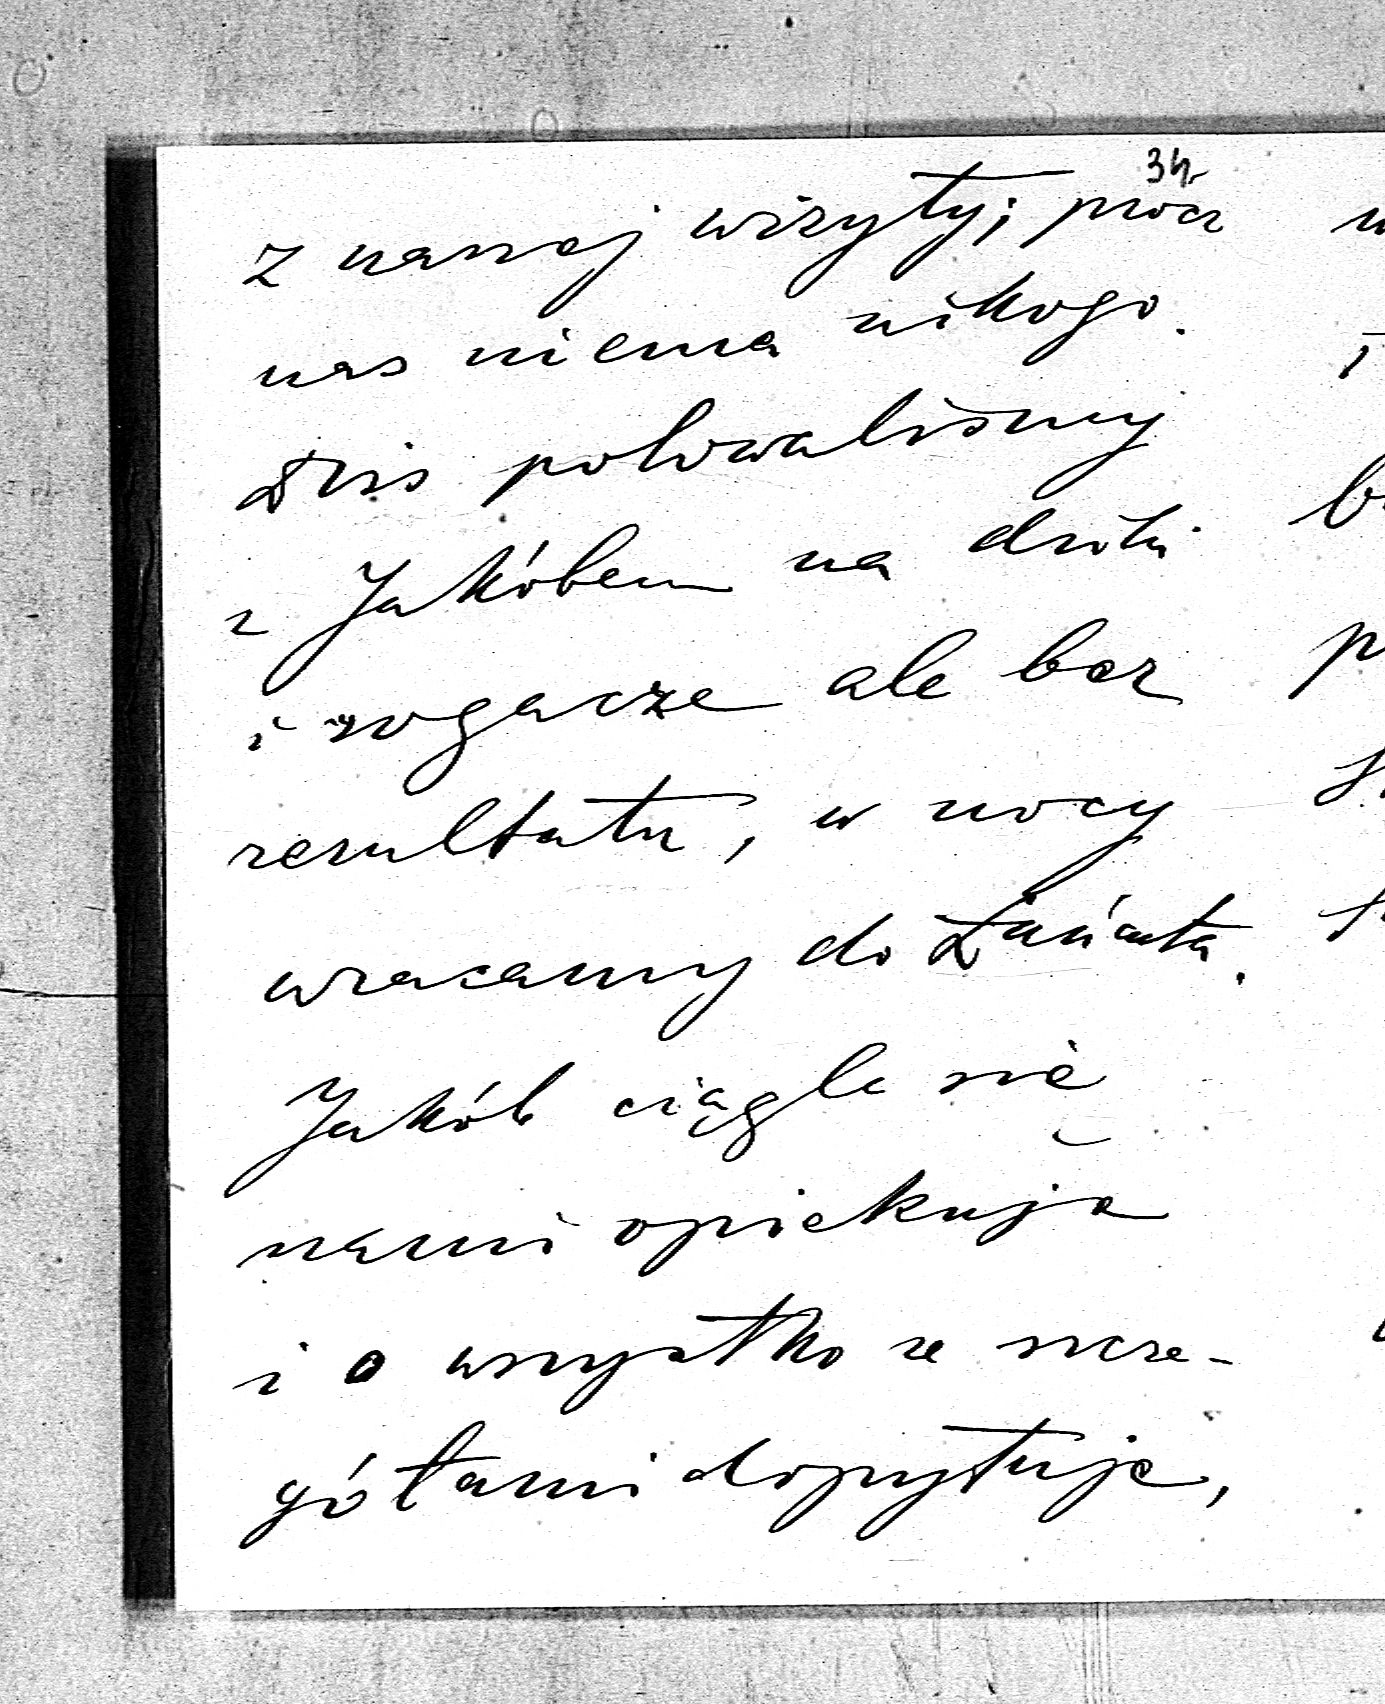 34
z naszej wizyty; prócz
nas niema nikogo.
Dziś polowaliśmy
z Jakóbem na
i rogacze ale bez
rezultatu, w nocy
wracamy do Łańcuta.
Jakób ciągle się
nami opiekuje
i o wszystko ze szcze-
gółami dopytuje,